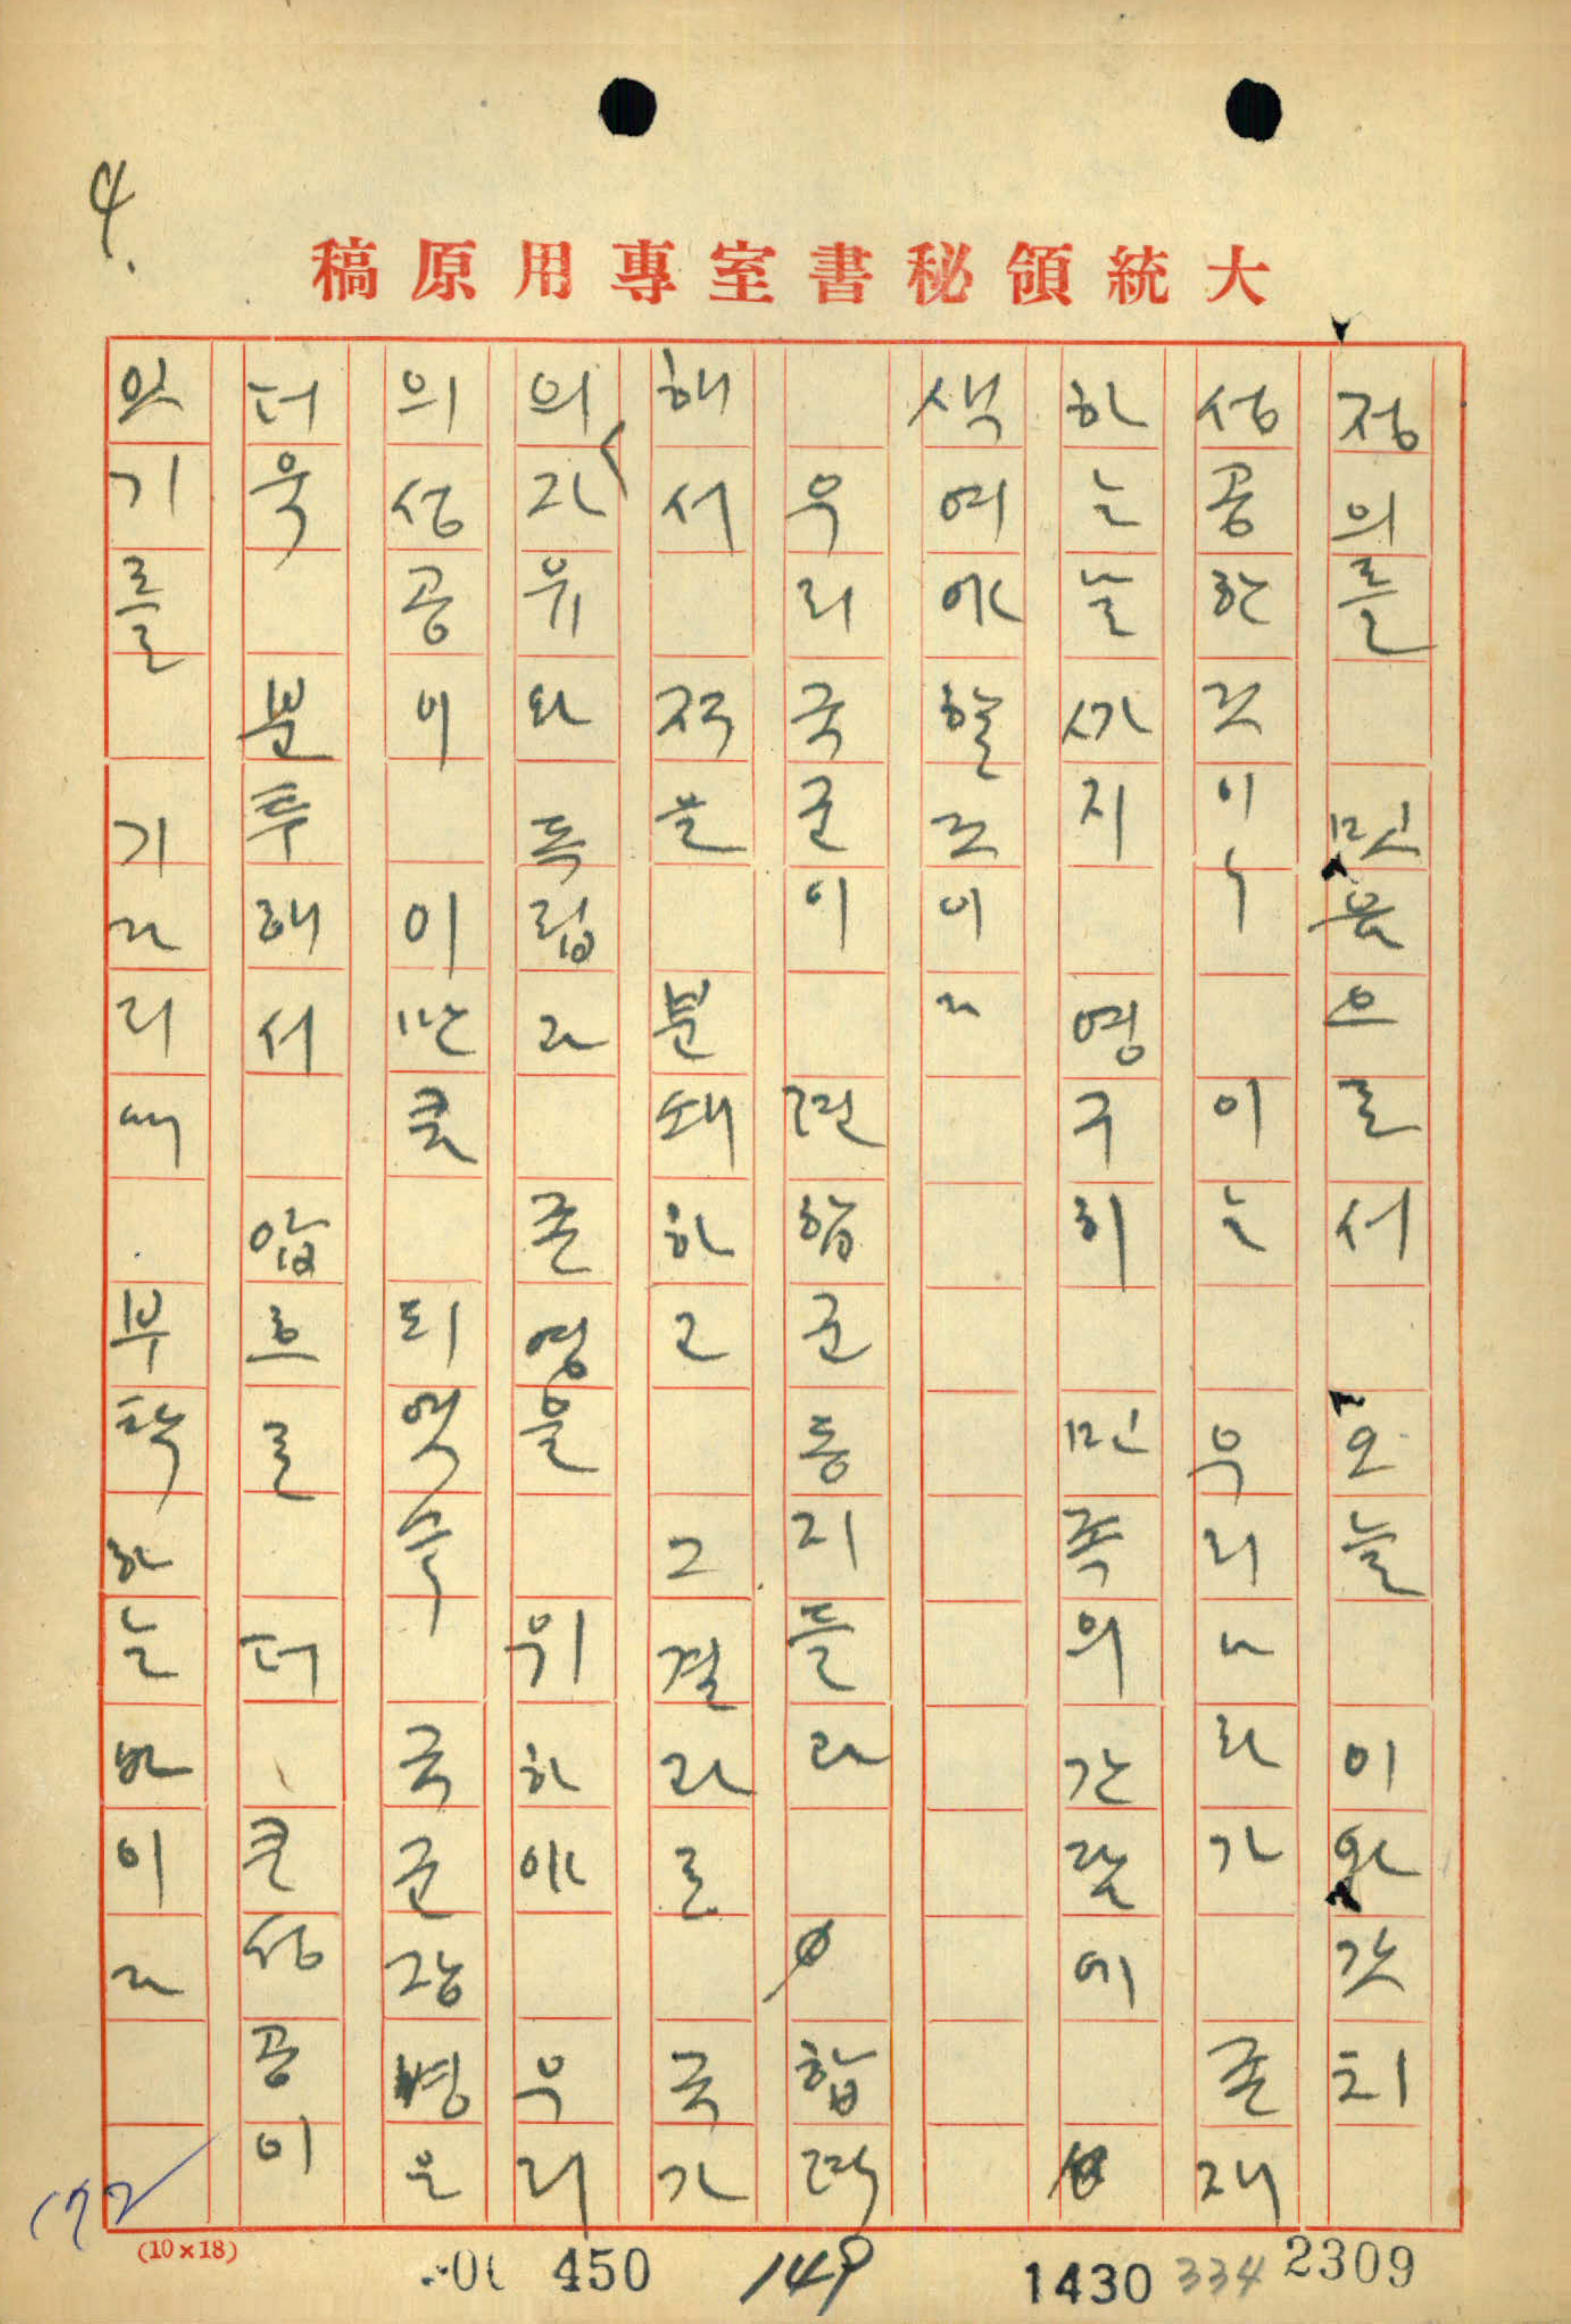 4.
大統領秘書室專用原稿
정의를 믿음으로서 오늘 이와갓치
성공한것이니 이는 우리나라가 존재
하는날까지 영구히 민족의 간담에
색여야할것이다
우리국군이 련합군동지들과 합력
해서 적을 분쇄하고 그결과로 국가
의자유와 독립과 존영을 위하야 우리
의성공이 이만큼 국군장병은
더욱 분투해서 압흐로 더 큰성공이
잇기를 기다리며 부탁하는바이다
172
(10×18)
450 149 1430 334 2309